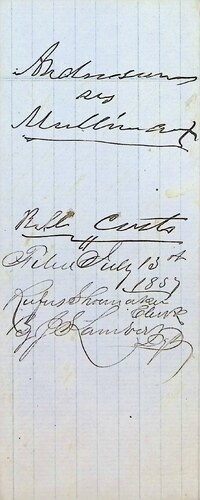 Anderson
vs
Mullinax
Bill Costs
Filed July 13th
1857
Rufus Shoemaker
Clerk
By J S Lambert
Dpty